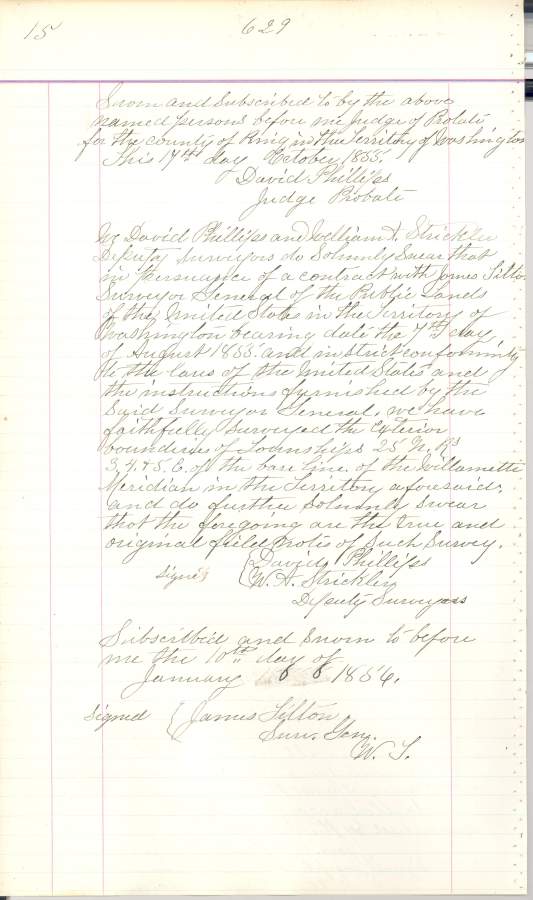 15 629
Sworn and Subscribed to by the above
named persons before me Judge of Probate
for the county of King in the Territory of Washington
this 17th day October, 1855.
David Phillips
Judge Probate
We David Phillips and William A. Strickler
Deputy Surveyors do Solemnly Swear that
in persuance of a contract with James Tilton
Surveyor General of the Public Lands
of the United States in the Territory of
Washington bearing date the 7th day
of August 1855. and in strict conformity
to the laws of the United States and
the instructions furnished by the
Said Surveyor General, we have
faithfully surveyed the Exterior
boundries of Townships 25 N. Rs
3, 4, & 5, E. of the base line of the Willamette
Meridian in the Territory aforesaid,
and do further Solemnly Swear
that the foregoing are the true and
original field Notes of Such Survey.
David Phillips
Signed { W. A. Strickler
Deputy Surveyors
Subscribed and Sworn to before
me the 10th day of
January 1856.
Signed { James Tilton
Surv. Gen.
W. T.